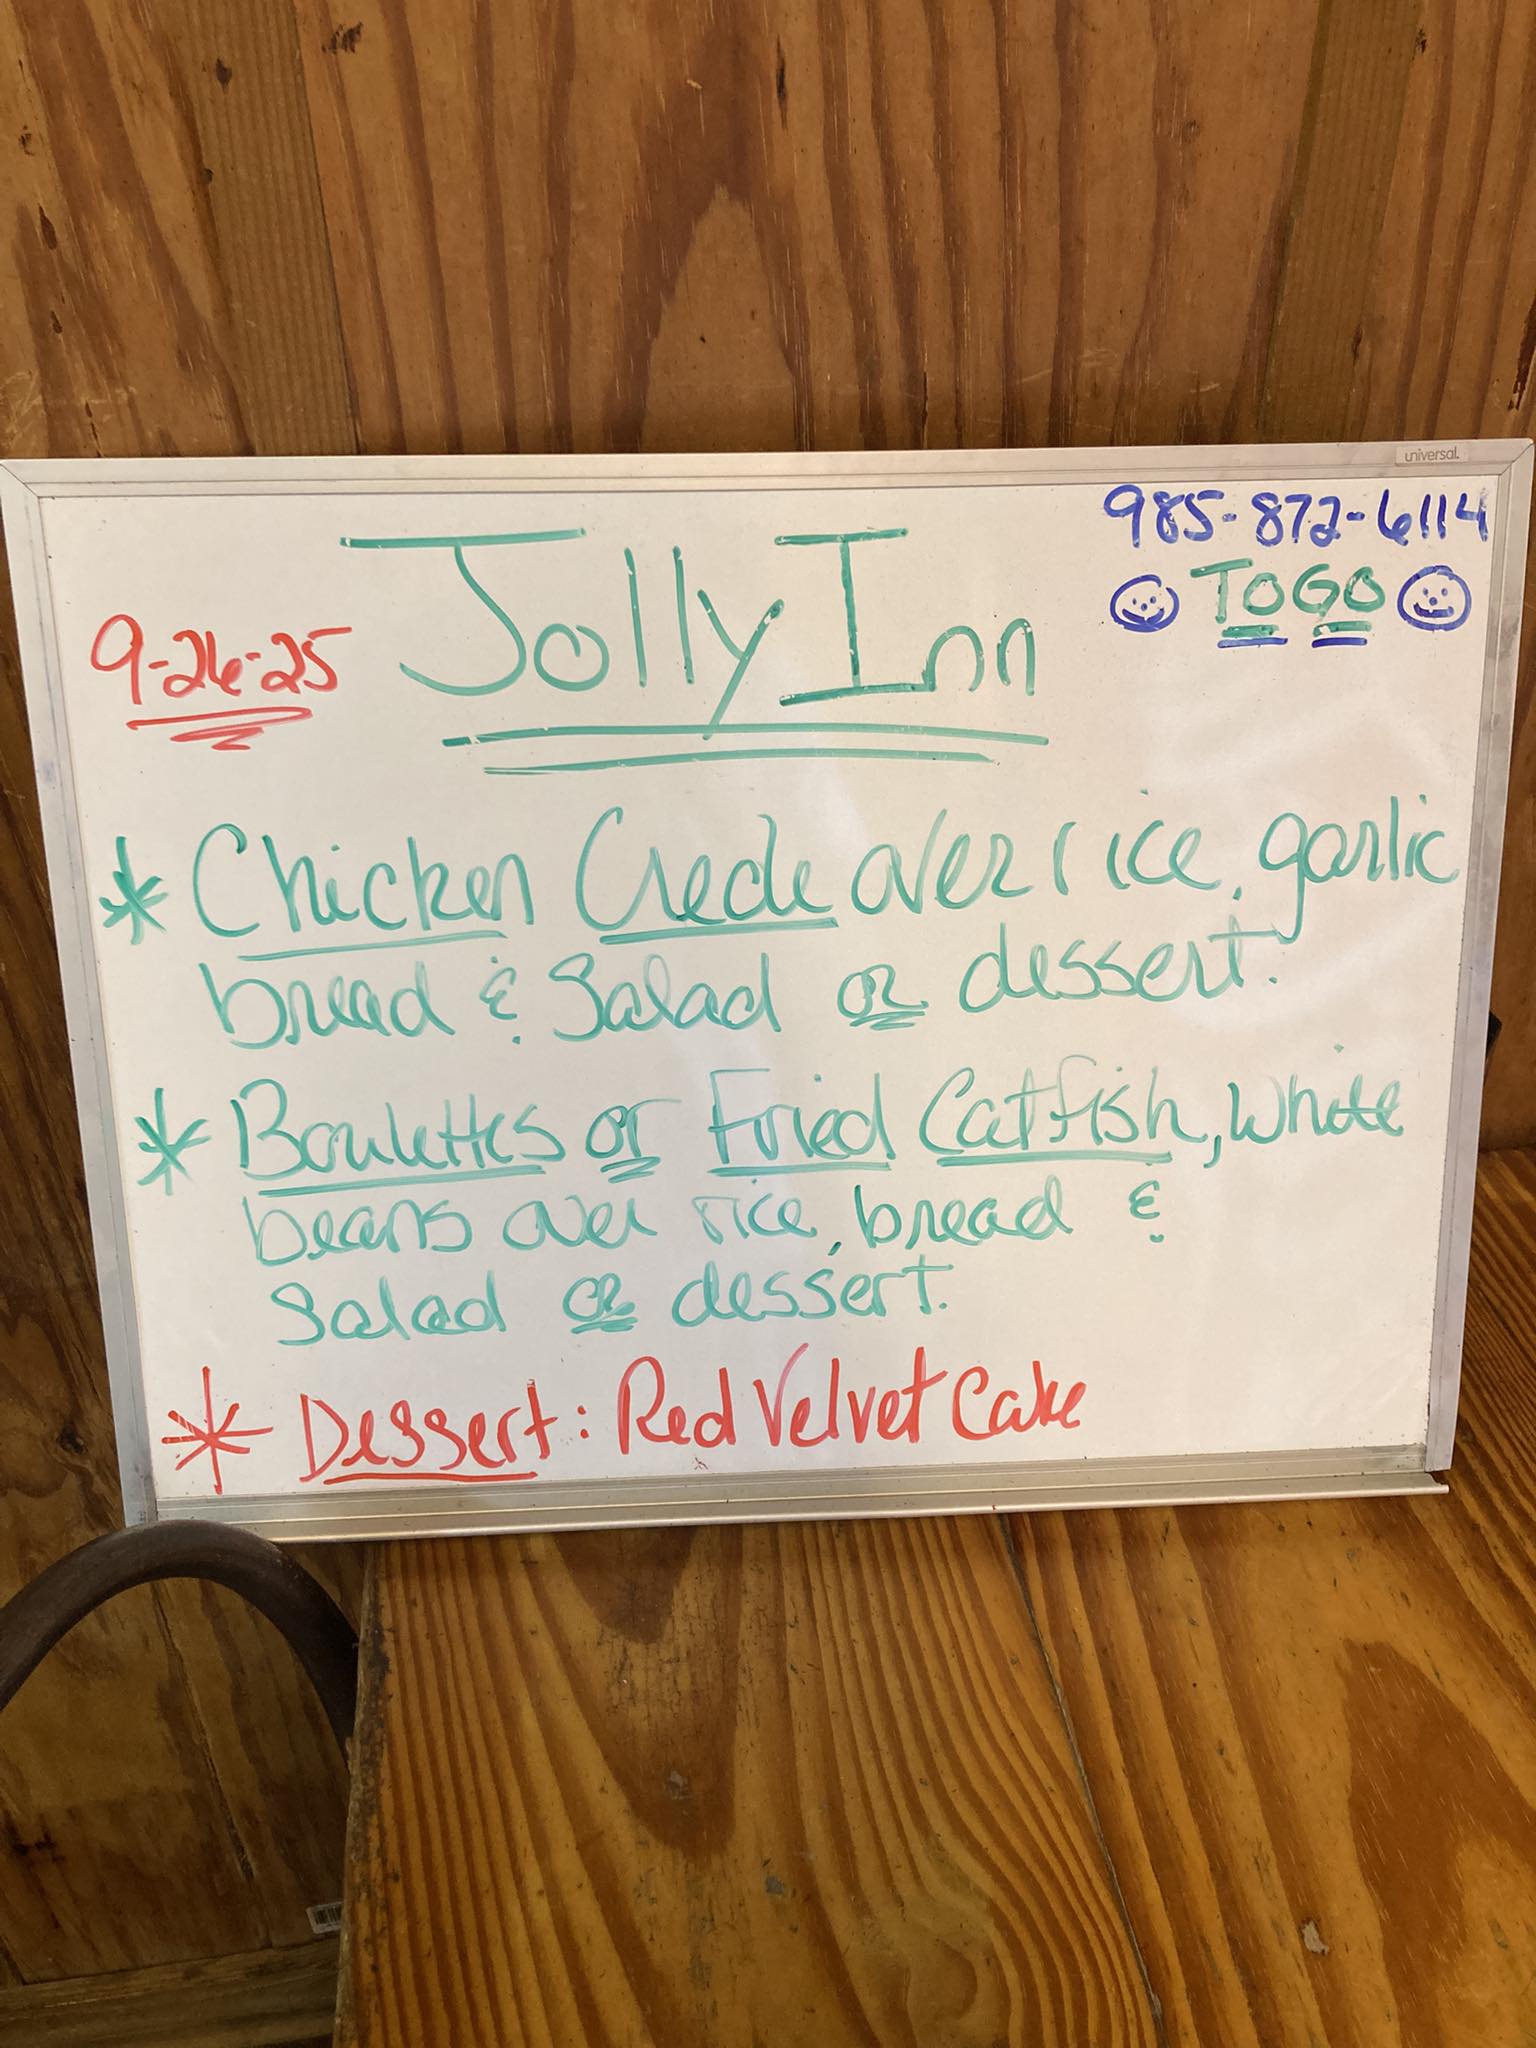 universal.
985-872-6114
TOGO
Jolly Inn
9-26-25
* Chicken Creole over rice, garlic
bread & Salad or dessert.
* Boulettes or Fried Catfish, white
beans over rice, bread &
Salad or dessert.
* Dessert: Red Velvet Cake